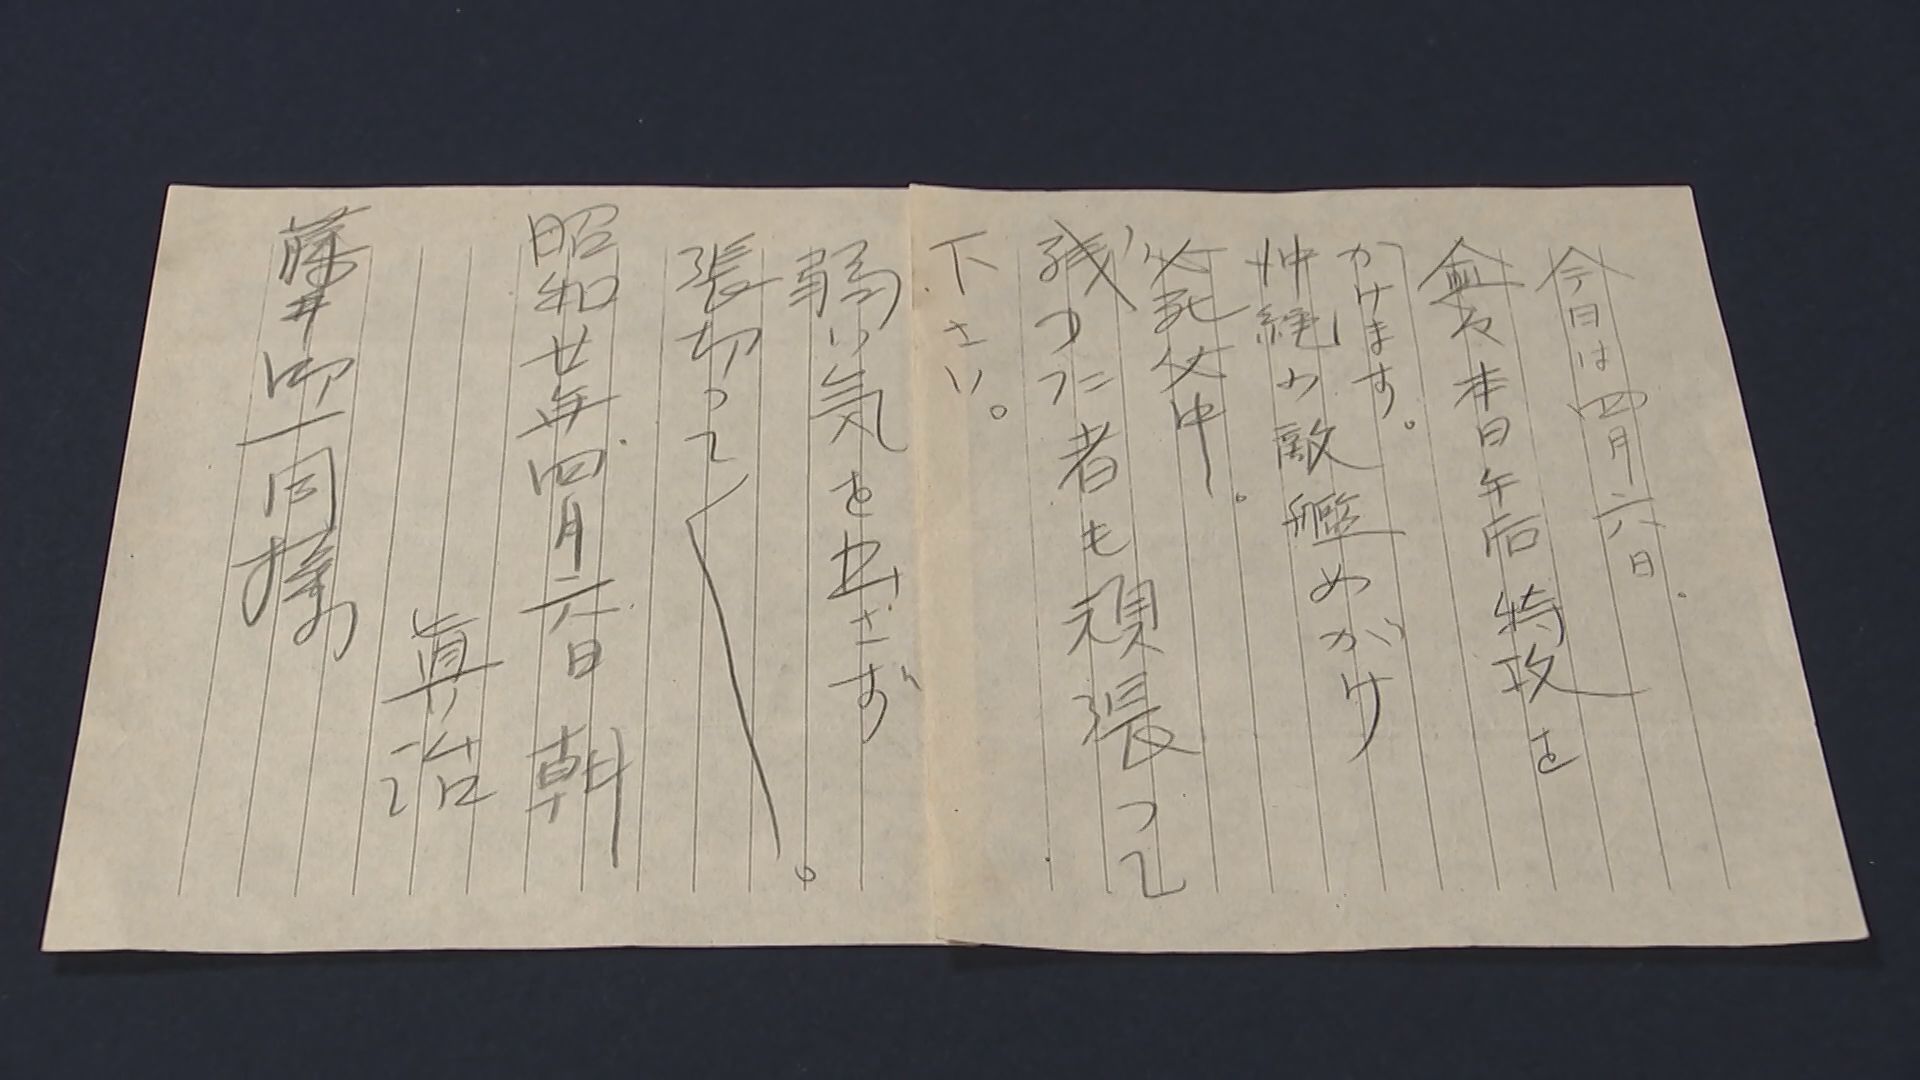 今日は四月六日。
愈々本日午后特攻を
かけます。
沖縄の敵艦めがけ
必死必中。
残つた者も頑張って
下さい。
弱い気を出さず
張切って〱。
昭和廿年四月六日 朝
眞治
藤井御一同様